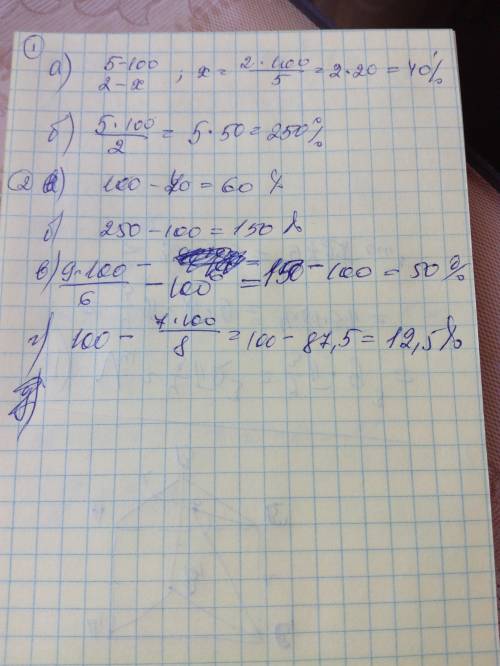 1
а) 5-100 / 2-x ; x = 2·100 / 5 = 2·20 = 40%
б) 5·100 / 2 = 5·50 = 250%
2 а) 100 - 40 = 60 %
б) 250 - 100 = 150 %
в) 9·100 / 6 - 100 = 150 - 100 = 50%
г) 100 - 7·100 / 8 = 100 - 87,5 = 12,5%